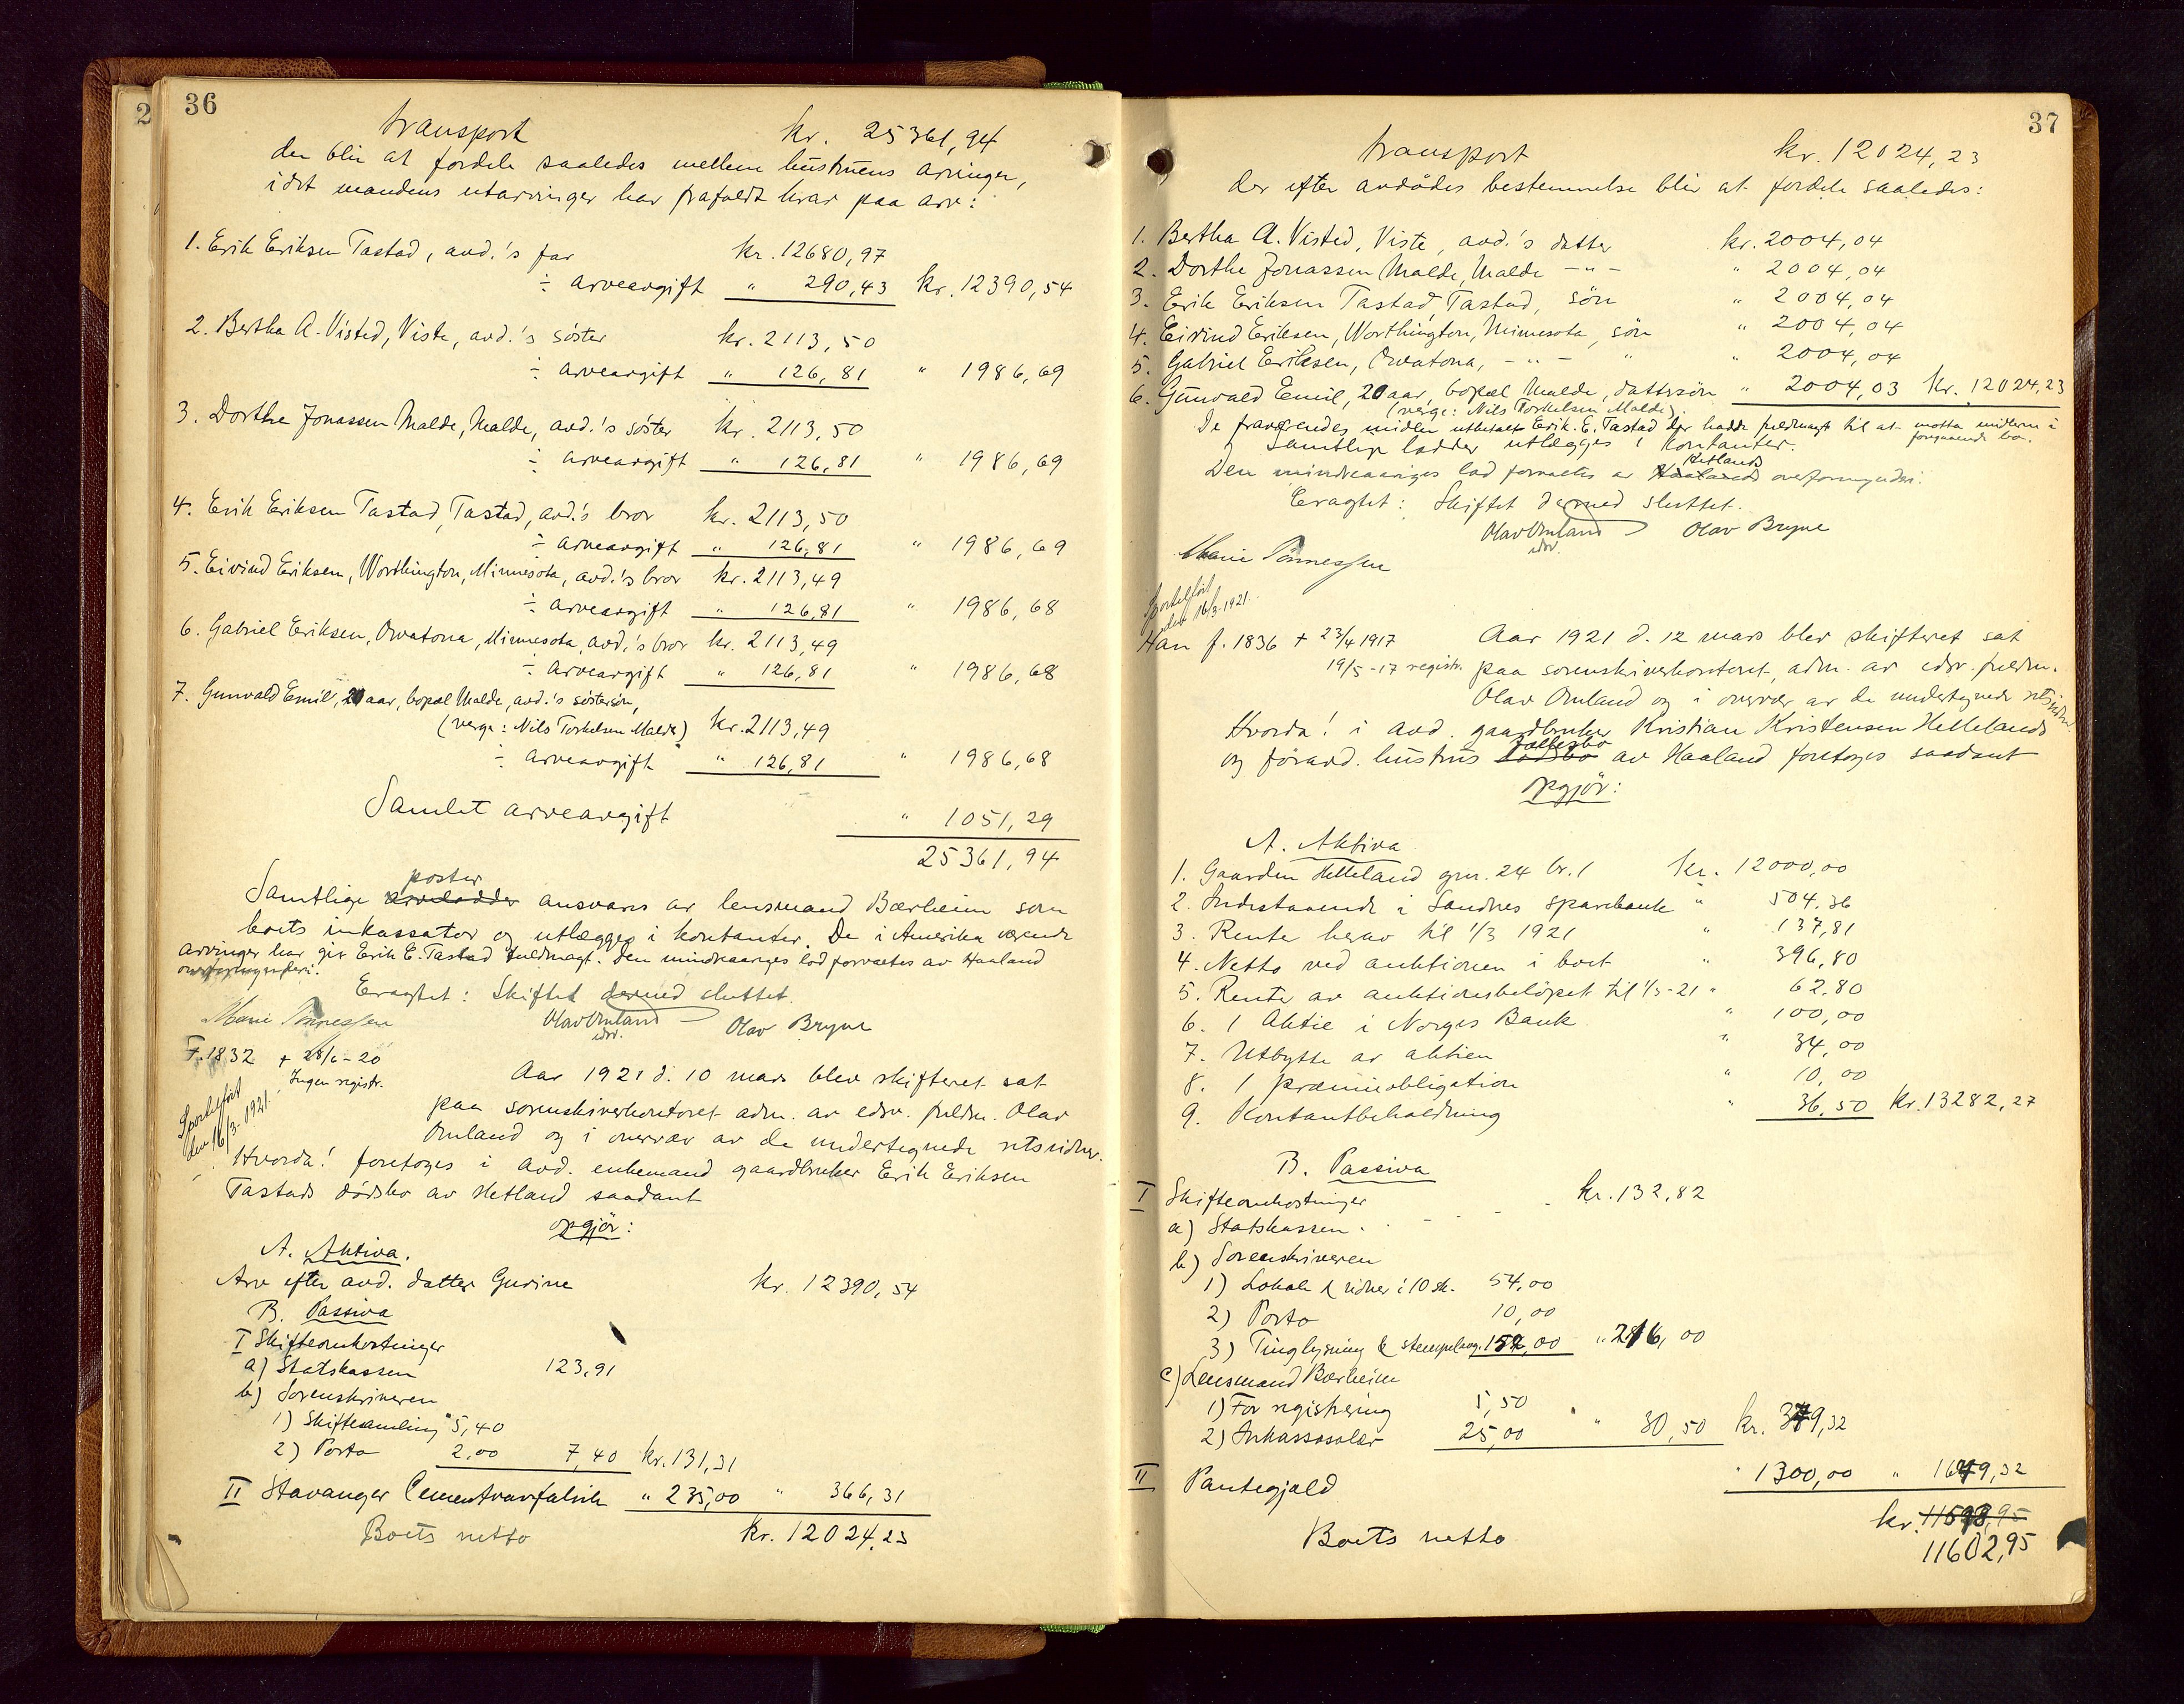 2
36
transport kr. 25361,94
der blir at fordele saaledes mellem hustruens arvinger,
idet mandens utarvinger har frafaldt krav paa arv:
1. Erik Eriksen Tastad, avd.'s far kr. 12680,97
÷ arveavgift " 290,43 kr. 12390,54
2. Bertha A. Visted, Viste, avd.'s söster kr. 2113,50
÷ arveavgift " 126,81 " 1986,69
3. Dorthe Jonassen Malde, Malde, avd.'s söster kr. 2113,50
÷ arveavgift " 126,81 " 1986,69
4. Erik Eriksen Tastad, Tastad, avd.'s bror kr. 2113,50
÷ arveavgift " 126,81 " 1986,69
5. Eivind Eriksen, Worthington, Minnesota, avd.'s bror kr. 2113,49
÷ arveavgift " 126,81 " 1986,68
6. Gabriel Eriksen, Owatona, Minnesota, avd.'s bror kr. 2113,49
÷ arveavgift " 126,81 " 1986,68
7. Gunvald Emil, 20 aar, bopæl Malde, avd.'s söstersön,
(verge: Nils Torkelsen Malde) kr. 2113,49
÷ arveavgift " 126,81 " 1986,68
Samlet arveavgift " 1051,29
25361,94
poster
Samtlige arvelodder ansvares av lensmand Bærheim som
boets inkassator og utlægges i kontanter. De i Amerika værende
arvinger har gir Erik E. Tastad fuldmagt. Den mindreaariges lod forvaltes av Haaland
overformynderi.
Eragtet: Skiftet dermed sluttet.
Marie Tönnessen Olav Omland Olav Bryne
edsv.
F. 1832 + 28/6-20
Ingen registr.
Sportelført
den 16/3 1921.
Aar 1921 d. 10 mars blev skifteret sat
paa sorenskriverkontoret adm. av edsv. fuldm. Olav
Omland og i overvær av de undertegnede retsvidner.
Hvorda! foretoges i avd. enkemand gaardbruker Erik Eriksen
Tastads dödsbo av Hetland saadant
opgjör:
A. Aktiva.
Arv efter avd. datter Gurine kr. 12390,54
B. Passiva
I Skifteomkostninger
a) Statskassen 123,91
b) Sorenskriveren
1) Skiftesamling 5,40
2) Porto 2,00 7,40 kr. 131,31
II Stavanger Cementvarefabrik " 235,00 " 366,31
Boets netto kr. 12024,23
37
transport kr. 12024,23
der efter avdödes bestemmelse blir at fordele saaledes:
1. Bertha A. Visted, Viste, avd.'s datter kr. 2004,04
2. Dorthe Jonassen Malde, Malde - " - " 2004,04
3. Erik Eriksen Tastad, Tastad, sön " 2004,04
4. Eivind Eriksen, Worthington, Minnesota, sön " 2004,04
5. Gabriel Eriksen, Owatona, - " - " " 2004,04
6. Gunvald Emil, 20 aar, bopæl Malde, dattersön " 2004,03 kr. 12024,23
(verge: Nils Torkelsen Malde).
De fraværendes midler utbetales Erik E. Tastad der hadde fuldmagt til at motta midlerne i
foregaaende bo.
Samtlige lodder utlægges i kontanter.
Hetlands
Den mindreaariges lod forvaltes av Haalands overformynderi.
Eragtet: Skiftet dermed sluttet.
Olav Omland Olav Bryne
edsv.
Marie Tönnessen
Sportelført
den 16/3 1921.
Han f. 1836 + 23/4 1917
19/5-17 registr.
Aar 1921 d. 12 mars blev skifteret sat
paa sorenskriverkontoret, adm. av edsv. fuldm.
Olav Omland og i overvær av de undertegnede retsvidner
Hvorda! i avd. gaardbruker Kristian Kristensen Hellelands
fællesbo
og föravd. hustrus dödsbo av Haaland foretoges saadant
opgjör:
A. Aktiva
1. Gaarden Helleland gnr. 24 br. 1 kr. 12000,00
2. Indestaaende i Sandnes sparebank " 504,36
3. Rente herav til 1/3 1921 " 137,81
4. Netto ved auktionen i boet " 396,80
5. Rente av auktionsbelöpet til 1/3-21 " 62,80
6. 1 Aktie i Norges Bank " 100,00
7. Utbytte av aktien " 34,00
8. 1 præmieobligation " 10,00
9. Kontantbeholdning " 36,50 kr. 13282,27
B. Passiva
I Skifteomkostninger
a) Statskassen kr. 132,82
b) Sorenskriveren
1) Lokale & vidner i 10 sk. 54,00
2) Porto 10,00
3) Tinglysning & stempelavg. 152,00 " 216,00
c) Lensmand Bærheim
1) For registrering 5,50
2) Inkassosalær 25,00 " 30,50 kr. 379,32
II Pantegjæld " 1300,00 " 1679,32
kr. 11598,95
Boets netto 11602,95